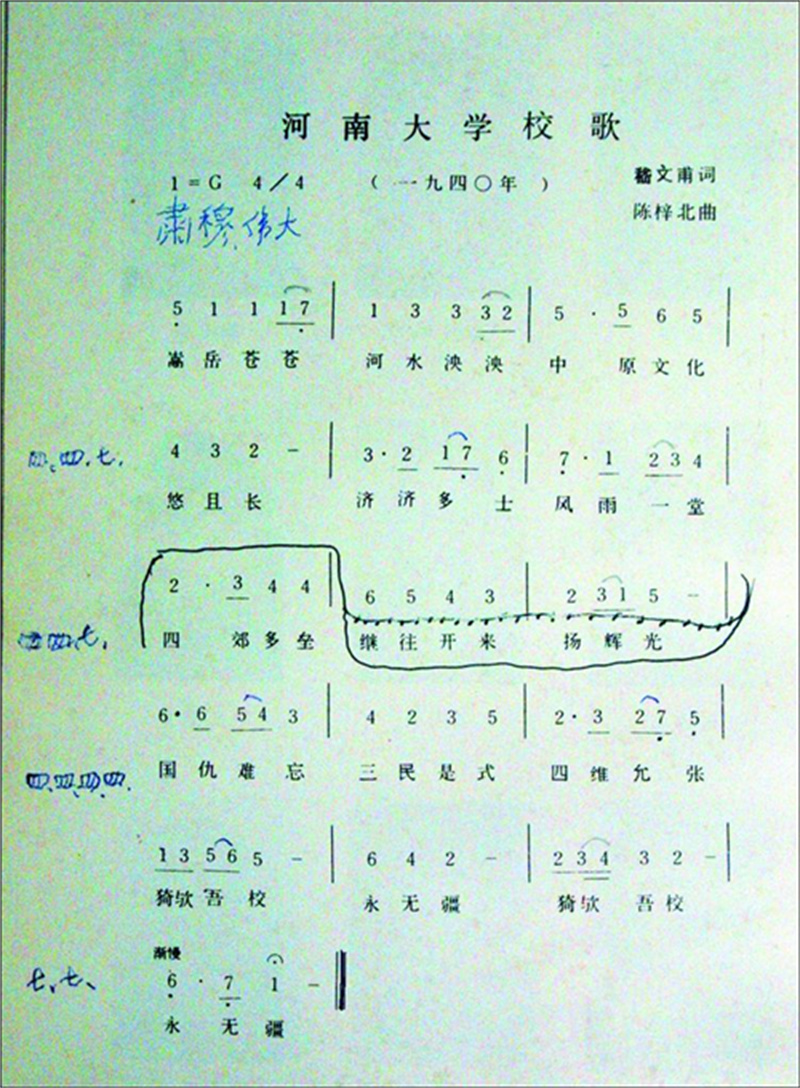 河南大学校歌
1=G 4/4 (一九四〇年) 嵇文甫词
陈梓北曲
肃穆、伟大
5 1 1 1 7 | 1 3 3 3 2 | 5 · 5 6 5 |
嵩岳苍苍 河水泱泱 中原文化
四、四、七、
4 3 2 - | 3 · 2 1 7 6 | 7 · 1 2 3 4 |
悠且长 济济多士 风雨一堂
2 · 3 4 4 | 6 5 4 3 | 2 3 1 5 - |
四、四、七、
四郊多垒 继往开来 扬辉光
6 · 6 5 4 3 | 4 2 3 5 | 2 · 3 2 7 5 |
国仇难忘 三民是式 四维允张
四、四、四、四、
1 3 5 6 5 - | 6 4 2 - | 2 3 4 3 2 - |
猗欤吾校 永无疆 猗欤吾校
渐慢
七、七、
6 · 7 1 - ‖
永无疆